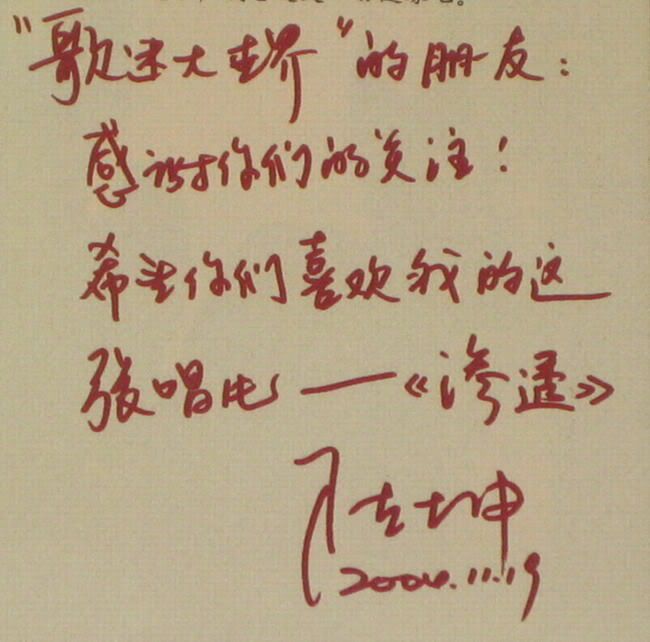 "歌迷大世界"的朋友：
感谢你们的关注！
希望你们喜欢我的这
张唱片——《渗透》
陈坤
2004.11.19